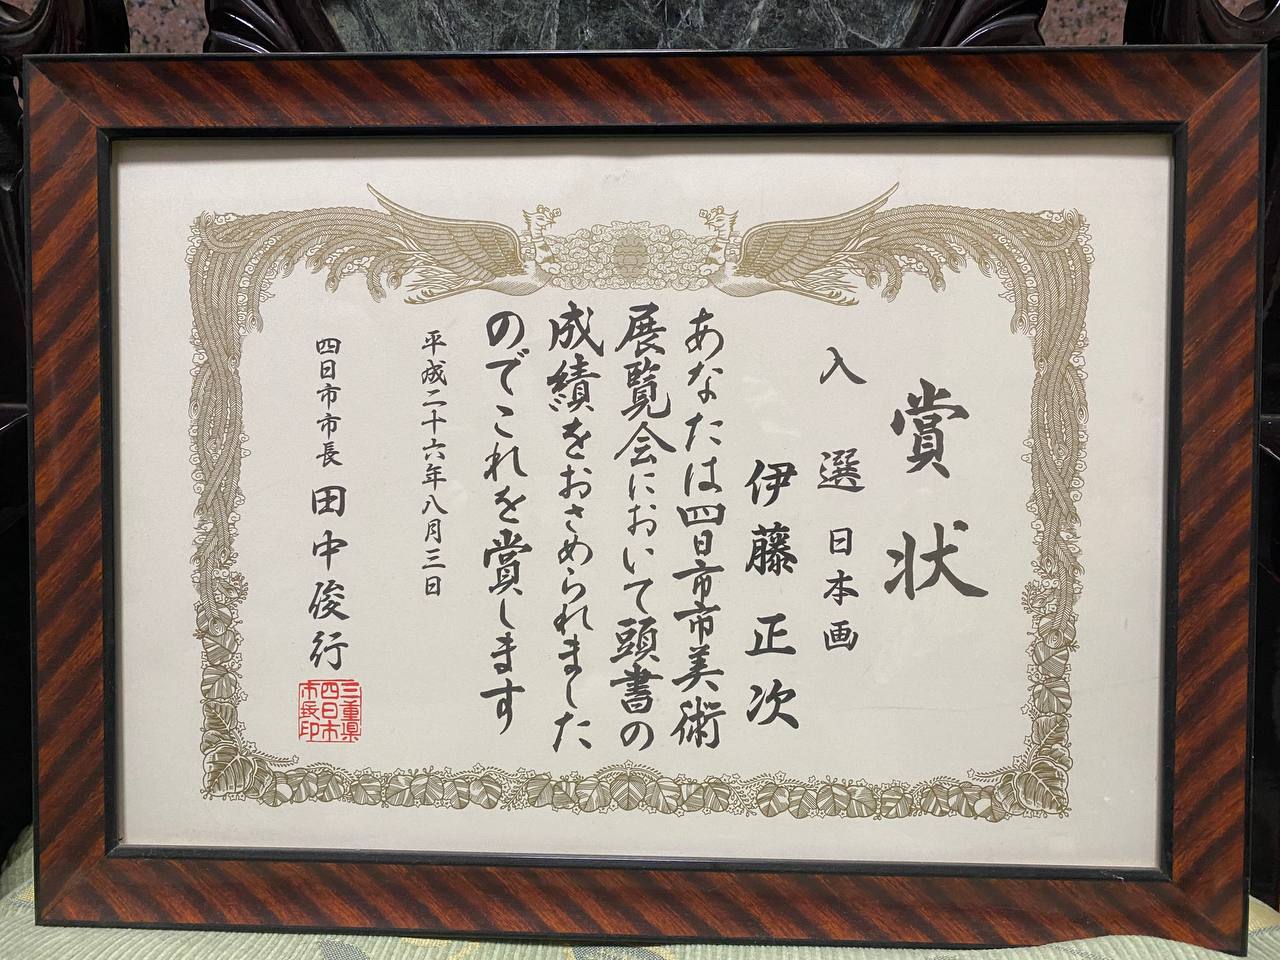 賞状
入選 日本画
伊藤正次
あなたは四日市市美術
展覧会において頭書の
成績をおさめられました
のでこれを賞します
平成二十六年八月三日
四日市市長 田中俊行
三重県
四日市
市長印